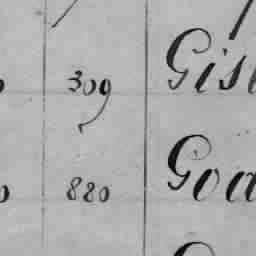 309 Gisl
880 Goa